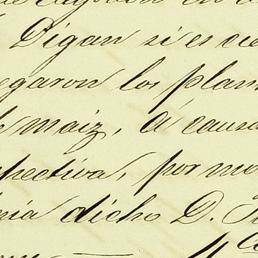 Digan si es cie
garon los plan
maiz, á causa
pectiva, por mo
nia dicho D.